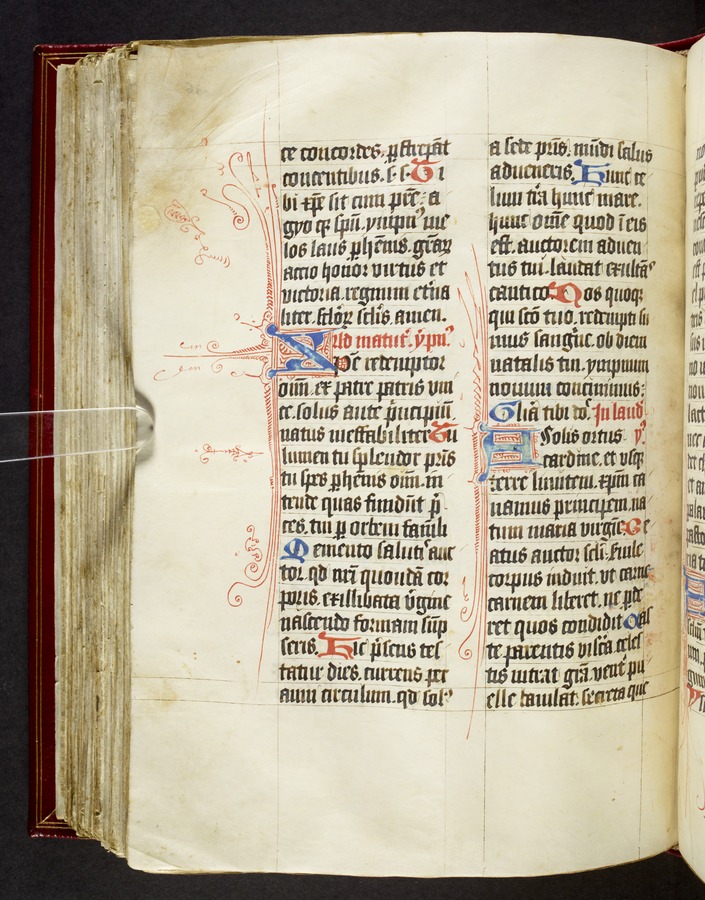 ce concordes. p̲strepāt
concentibus. s. s. Ti
bi xp̄e sit cum pr̄e. a
gyo q̲ sp̄u. ympn᷒ me
los laus p̲hēnis. gr̄aꝝ
actio honor virtus et
victoria. regnum et̄na
liter. sc̄loꝝ sc̄lis. amen.
Ad matut᷒. ẏpn᷒.
Xp̄e redemptor
om̄. ex patre patris vni
ce. solus ante p̓ncipiū
natus ineffabiliter. Tu
lumen tu splendor pr̄is
tu spes p̲hēnis om̄. in
tende quas fundūt p̄
ces. tui p̲ orbem famli
Memento saluti᷒ auc
tor. qd nr̄i quondā cor
poris. ex illibata v̓gine
nascendo formam sūp
seris. Hic p̄sens tes
tatur dies. currens per
anni circulum. qd sol᷒
a sede pr̄is. mūdi salus
adueneris. Hunc ce
lum tr̄a hunc mare.
hunc om̄e quod ī eis
est. auctorem aduen
tus tui. laudat exultā᷒
cantico. Nos quoq̲
qui sc̄o tuo. redempti su
mus sangūe. ob diem
natalis tui. ympnum
nouum concinimus:
Gl̄ia tibi do᷒. In laud᷒
A Solis ortus y᷒.
cardine. et vsq̲
terre limitem. xp̄um ca
namus principem. na
tum maria virgīe. Be
atus auctor sc̄li. seruile
corpus induit. vt carne
carnem liberet. ne p̲de
ret quos condidit. Cas
te parentis visc̄a. celes
tis intrat gr̄a. vent᷒ pu
elle baiulat. secreta que